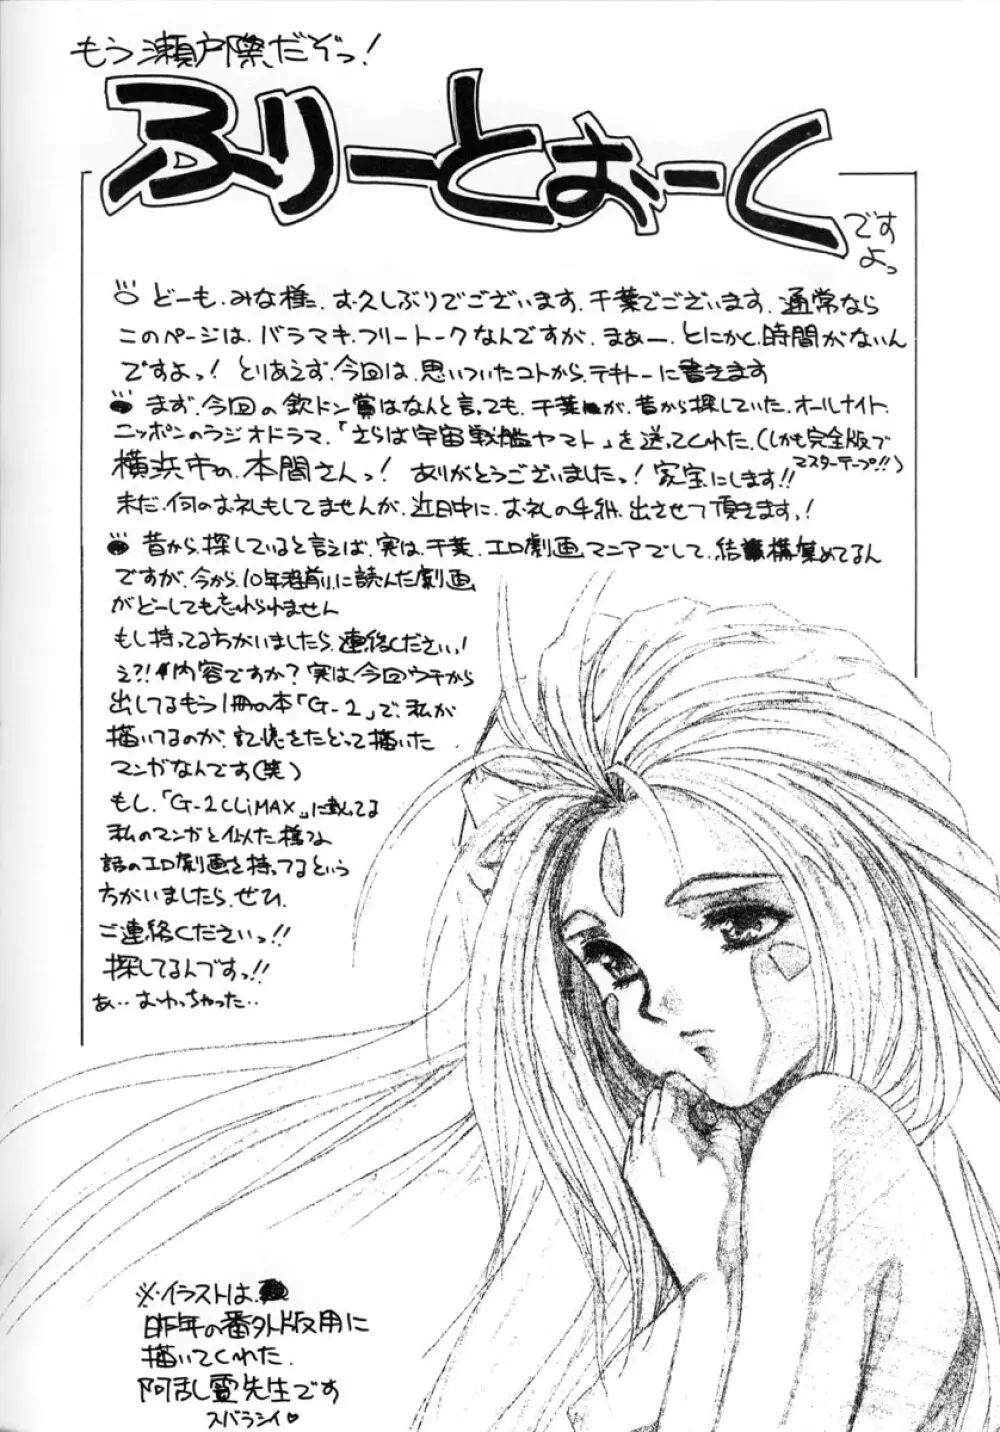 もう瀬戸際だぞっ!
ふりーとおーく
ですよっ
どーも、みな様、お久しぶりでございます、千葉でございます、通常なら
このページは、バラマキ、フリートークなんですが、まぁー、とにかく、時間がないん
ですよっ! とりあえず、今回は、思いついたコトから、テキトーに書きます
まず、今回の欽ドン賞はなんと言っても、千葉が、昔から探していた、オールナイト
ニッポンのラジオドラマ、「さらば宇宙戦艦ヤマト」を送ってくれた、(しかも完全版で
マスターテープ!!)
横浜市の、本間さんっ! ありがとうございましたっ! 家宝にします!!
まだ、何のお礼もしてませんが、近日中に、お礼の手紙、出させて頂きますっ!
昔から、探していると言えば、実は、千葉、エロ劇画マニアでして、結構集めてるん
ですが、今から、10年程前に読んだ劇画
がどーしても忘れられません
もし持ってる方がいましたら、連絡ください!
え?!内容ですか?実は、今回ウチから
出してるもう1冊の本「G-2」で、私が
描いてるのが、記憶をたどって描いた
マンガなんです(笑)
もし、「G-2 CLiMAX」に載ってる
私のマンガと似た様な
話のエロ劇画を持ってるという
方がいましたら、ぜひ、
ご連絡くださいっ!!
探してるんですっ!!
あ‥おわっちゃった‥
※イラストは、
昨年の番外版用に
描いてくれた、
阿乱霊先生です
スバラシイ♡